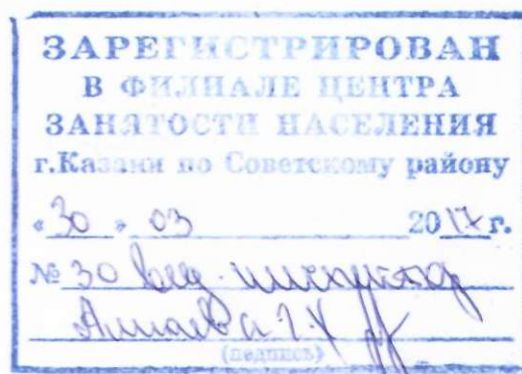 ЗАРЕГИСТРИРОВАН
В ФИЛИАЛЕ ЦЕНТРА
ЗАНЯТОСТИ НАСЕЛЕНИЯ
г.Казани по Советскому району
«30» 03 2017г.
№ 30 вед. инспектор
Г.Х
(подпись)